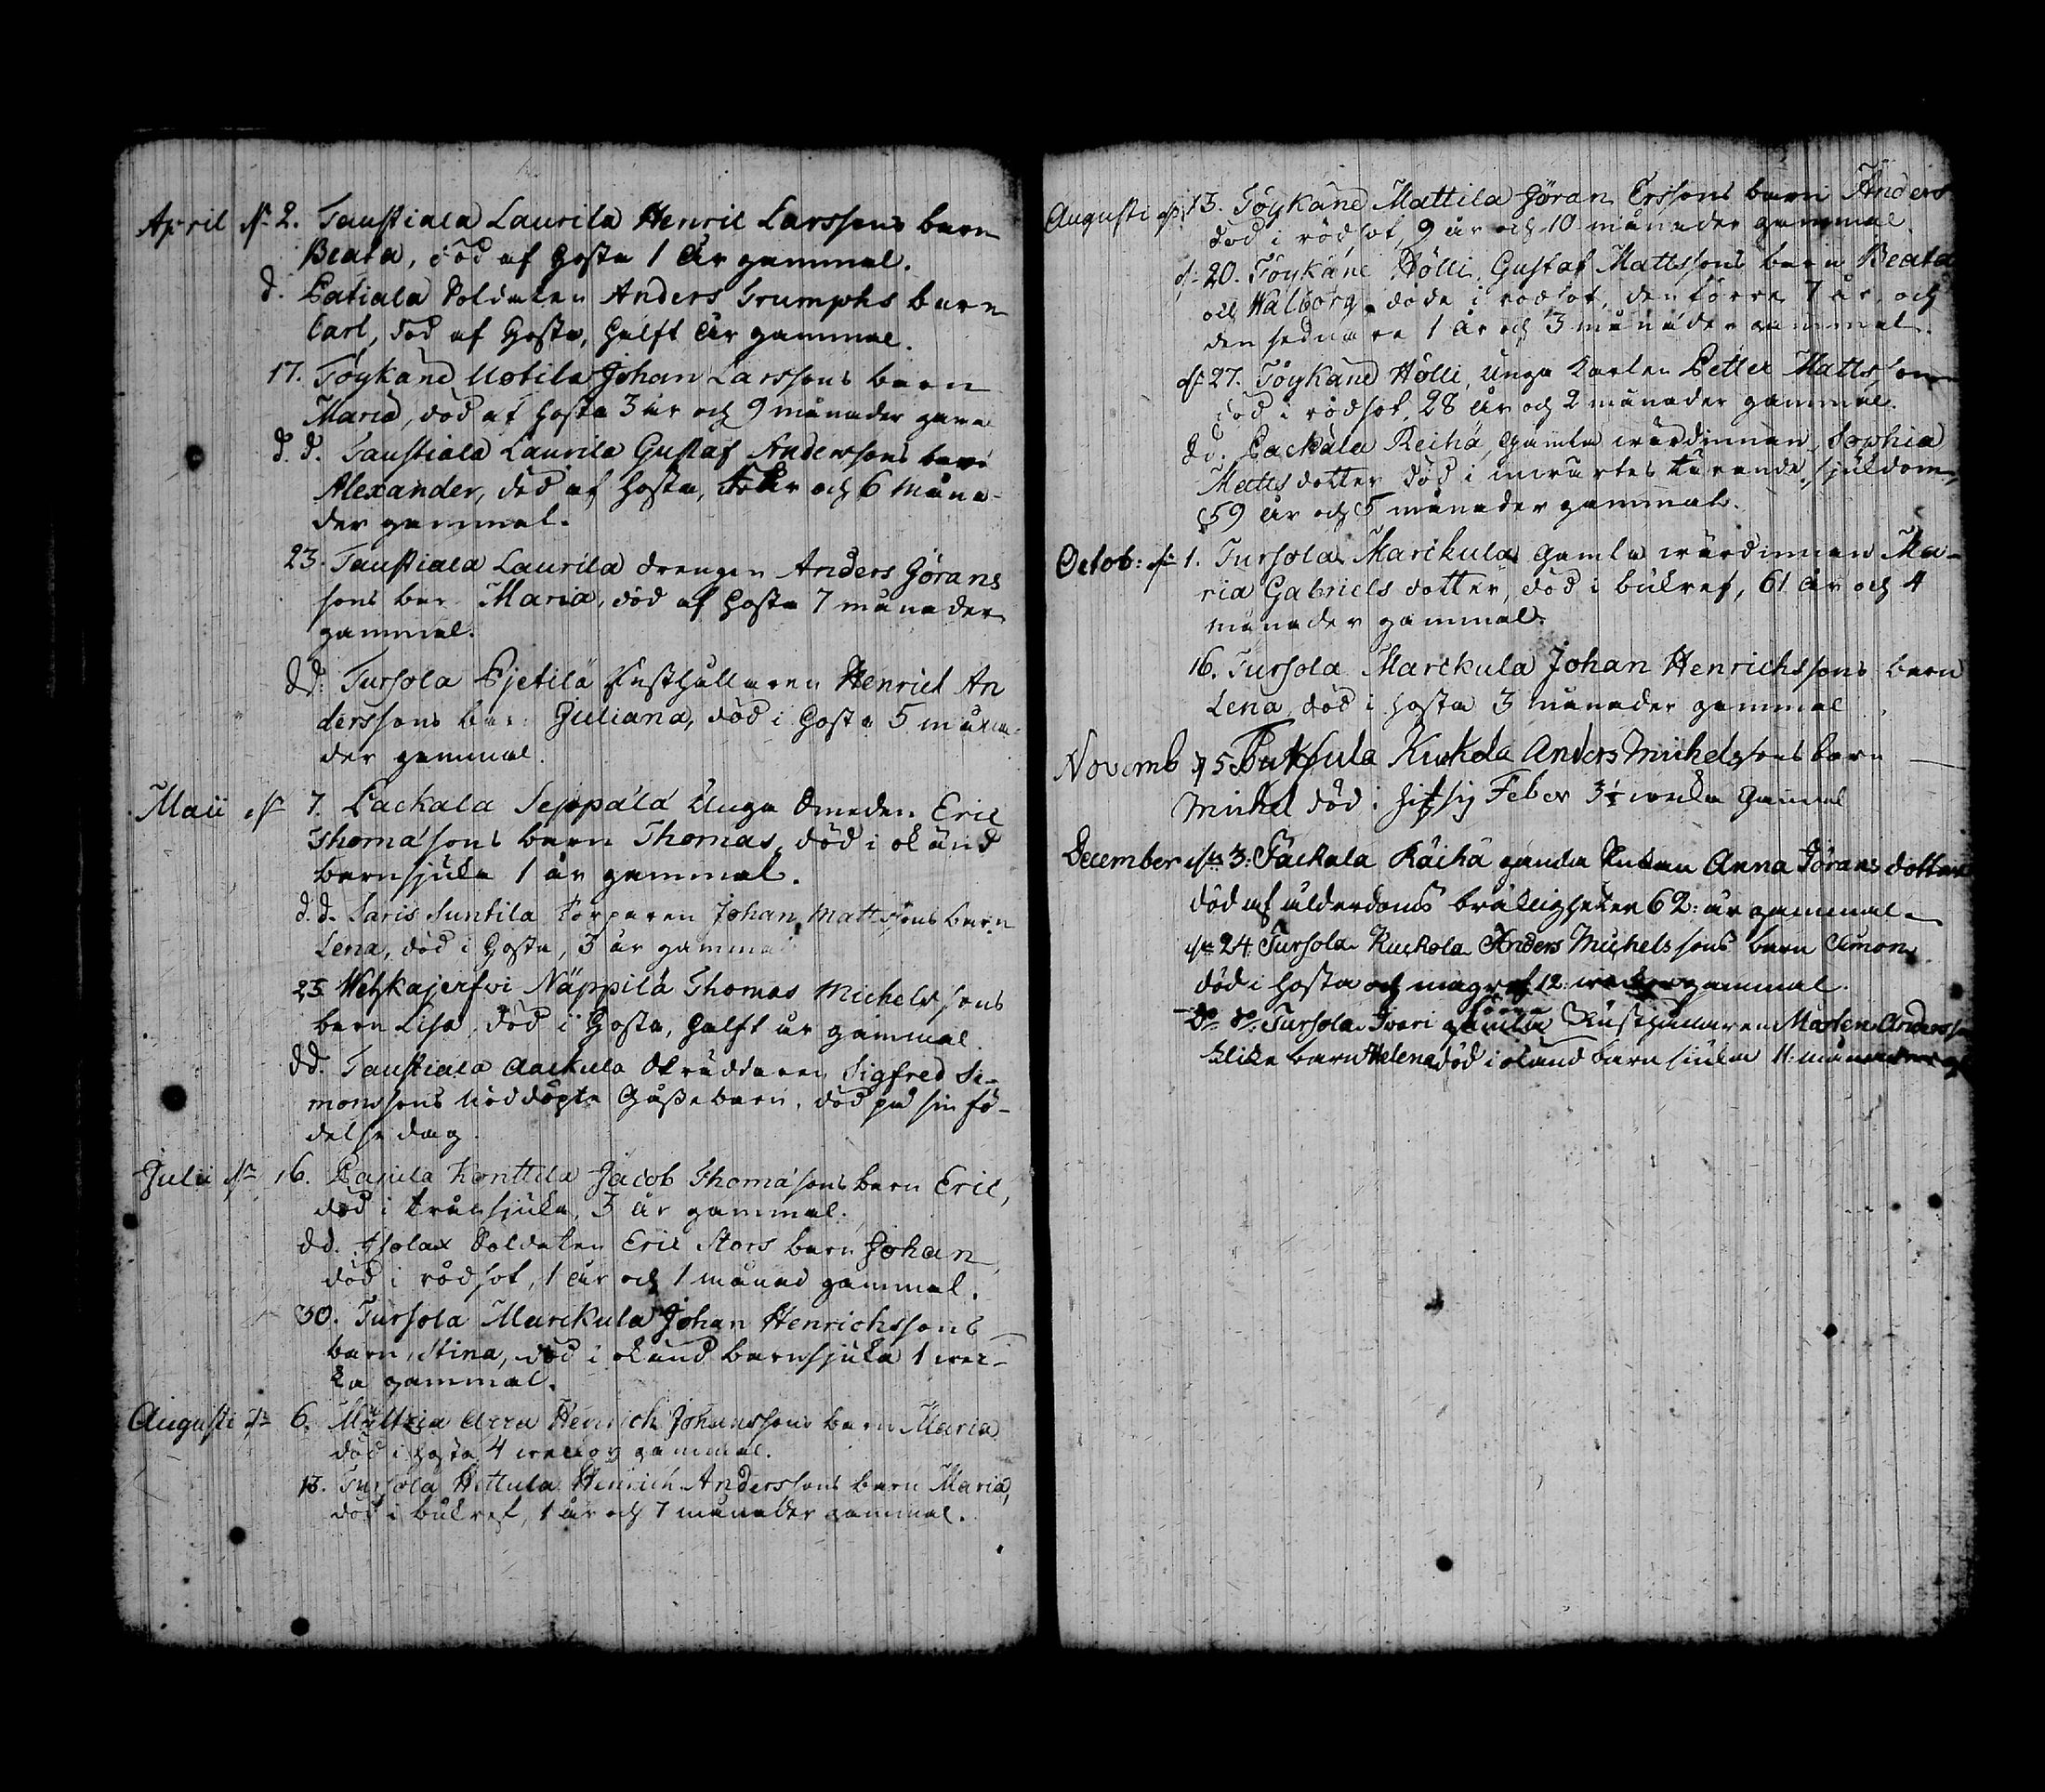 April d. 2. Taustiala Laurila Henric Larssons barn
Beata, död af hosta 1 år gammal.
d. Patiala Soldaten Anders Trumphs barn
Carl, död af hosta, halft år gammal.
17. Töykänä Uotila Johan Larssons barn
Maria, död af hosta 3 år och 9 månader gam̄al
d. d. Taustiala Laurila Gustaf Anderssons barn
Alexander, död af hosta, år och 6 måna-
der gammal.
23. Taustiala Laurila drengen Anders Görans
sons bar Maria, död af hosta 7 månader
gammal.
dd. Tursola Pjetilä Rusthållaren Henrich An
derssons bar Juliana, död i hosta 5 måna-
der gammal.
Maii d. 7. Packala Seppälä Unga Smeden Eric
Thomasons barn Thomas, död i okänd
barnsjuka 1 år gammal.
d. d. Saris Suntila torparen Johan Mattsons barn
Lena, död i hosta, 3 år gamma
25 Wehkajerfvi Näppilä Thomas Michelssons
barn Lisa, död i hosta, halft år gammal.
dd. Taustiala Aackula Skräddaren Sigfred Si-
monssons nöddöpta gåssebarn, död på sin fö-
delse dag.
Julii d. 16. Konttila Jacob Thomasons barn Eric,
död i tråssjuka, 3 år gammal.
dd. Isolax Soldaten Eric Stors barn Johan
död i rödsot, 1 år och 1 månad gammal.
30. Tursola Marckula Johan Henrichssons
barn, Stina, död i okänd barnsjuka 1 wec-
ka gammal.
Augusti d. 6. Henrich Johanssons barn Maria
död i hosta 4 weckor gammal.
13. Tursola Hettula Henrich Anderssons barn Maria,
död i bukref, 1 år och 7 månader gammal.
Augusti d. 13. Töykänä Mattila Göran Erssons barn Anders
död i rödsot, 9 år och 10 månader gammal.
d. 20. Töykänä Hölli Gustaf Mattssons barn Beata
och Walborg döde i rödsot, den förre 7 år, och
den sednare 1 år och 3 månader gammal.
d. 27. Töykänä Hölli, Unga Karlen Petter Mattsson
död i rödsot, 28 år och 2 månader gammal.
dd. Packala Reihä, gamla wärdinnan, Sophia
Matts dotter död i inwärtes tärande sjukdom,
59 år och 5 månader gammal.
Octob: d. 1. Tursola Marckula gamla wärdinnan Ma-
ria Gabriels dotter, död i bukref, 61 år och 4
månader gammal.
16. Tursola Marckula Johan Henrichssons barn
Lena, död i hosta 3 månader gammal
Novemb d 5 Kuckola Anders Michelssons barn
Michel död i hitsig Feber 3½ wecka gammal
December d. 3. Packala Räihä gamla Enkan Anna Görans dotter
död af ålderdoms bräklighet 62: år gammal.
d. 24 Tursola Kuckola Anders Michelssons barn Simon
död i hosta och magref 12: weckor gammal.
do do. Tursola Iwari gamla förra Rusthållaren Mårten Andersson
barn Helena död i okänd barnsjuka 11: månader